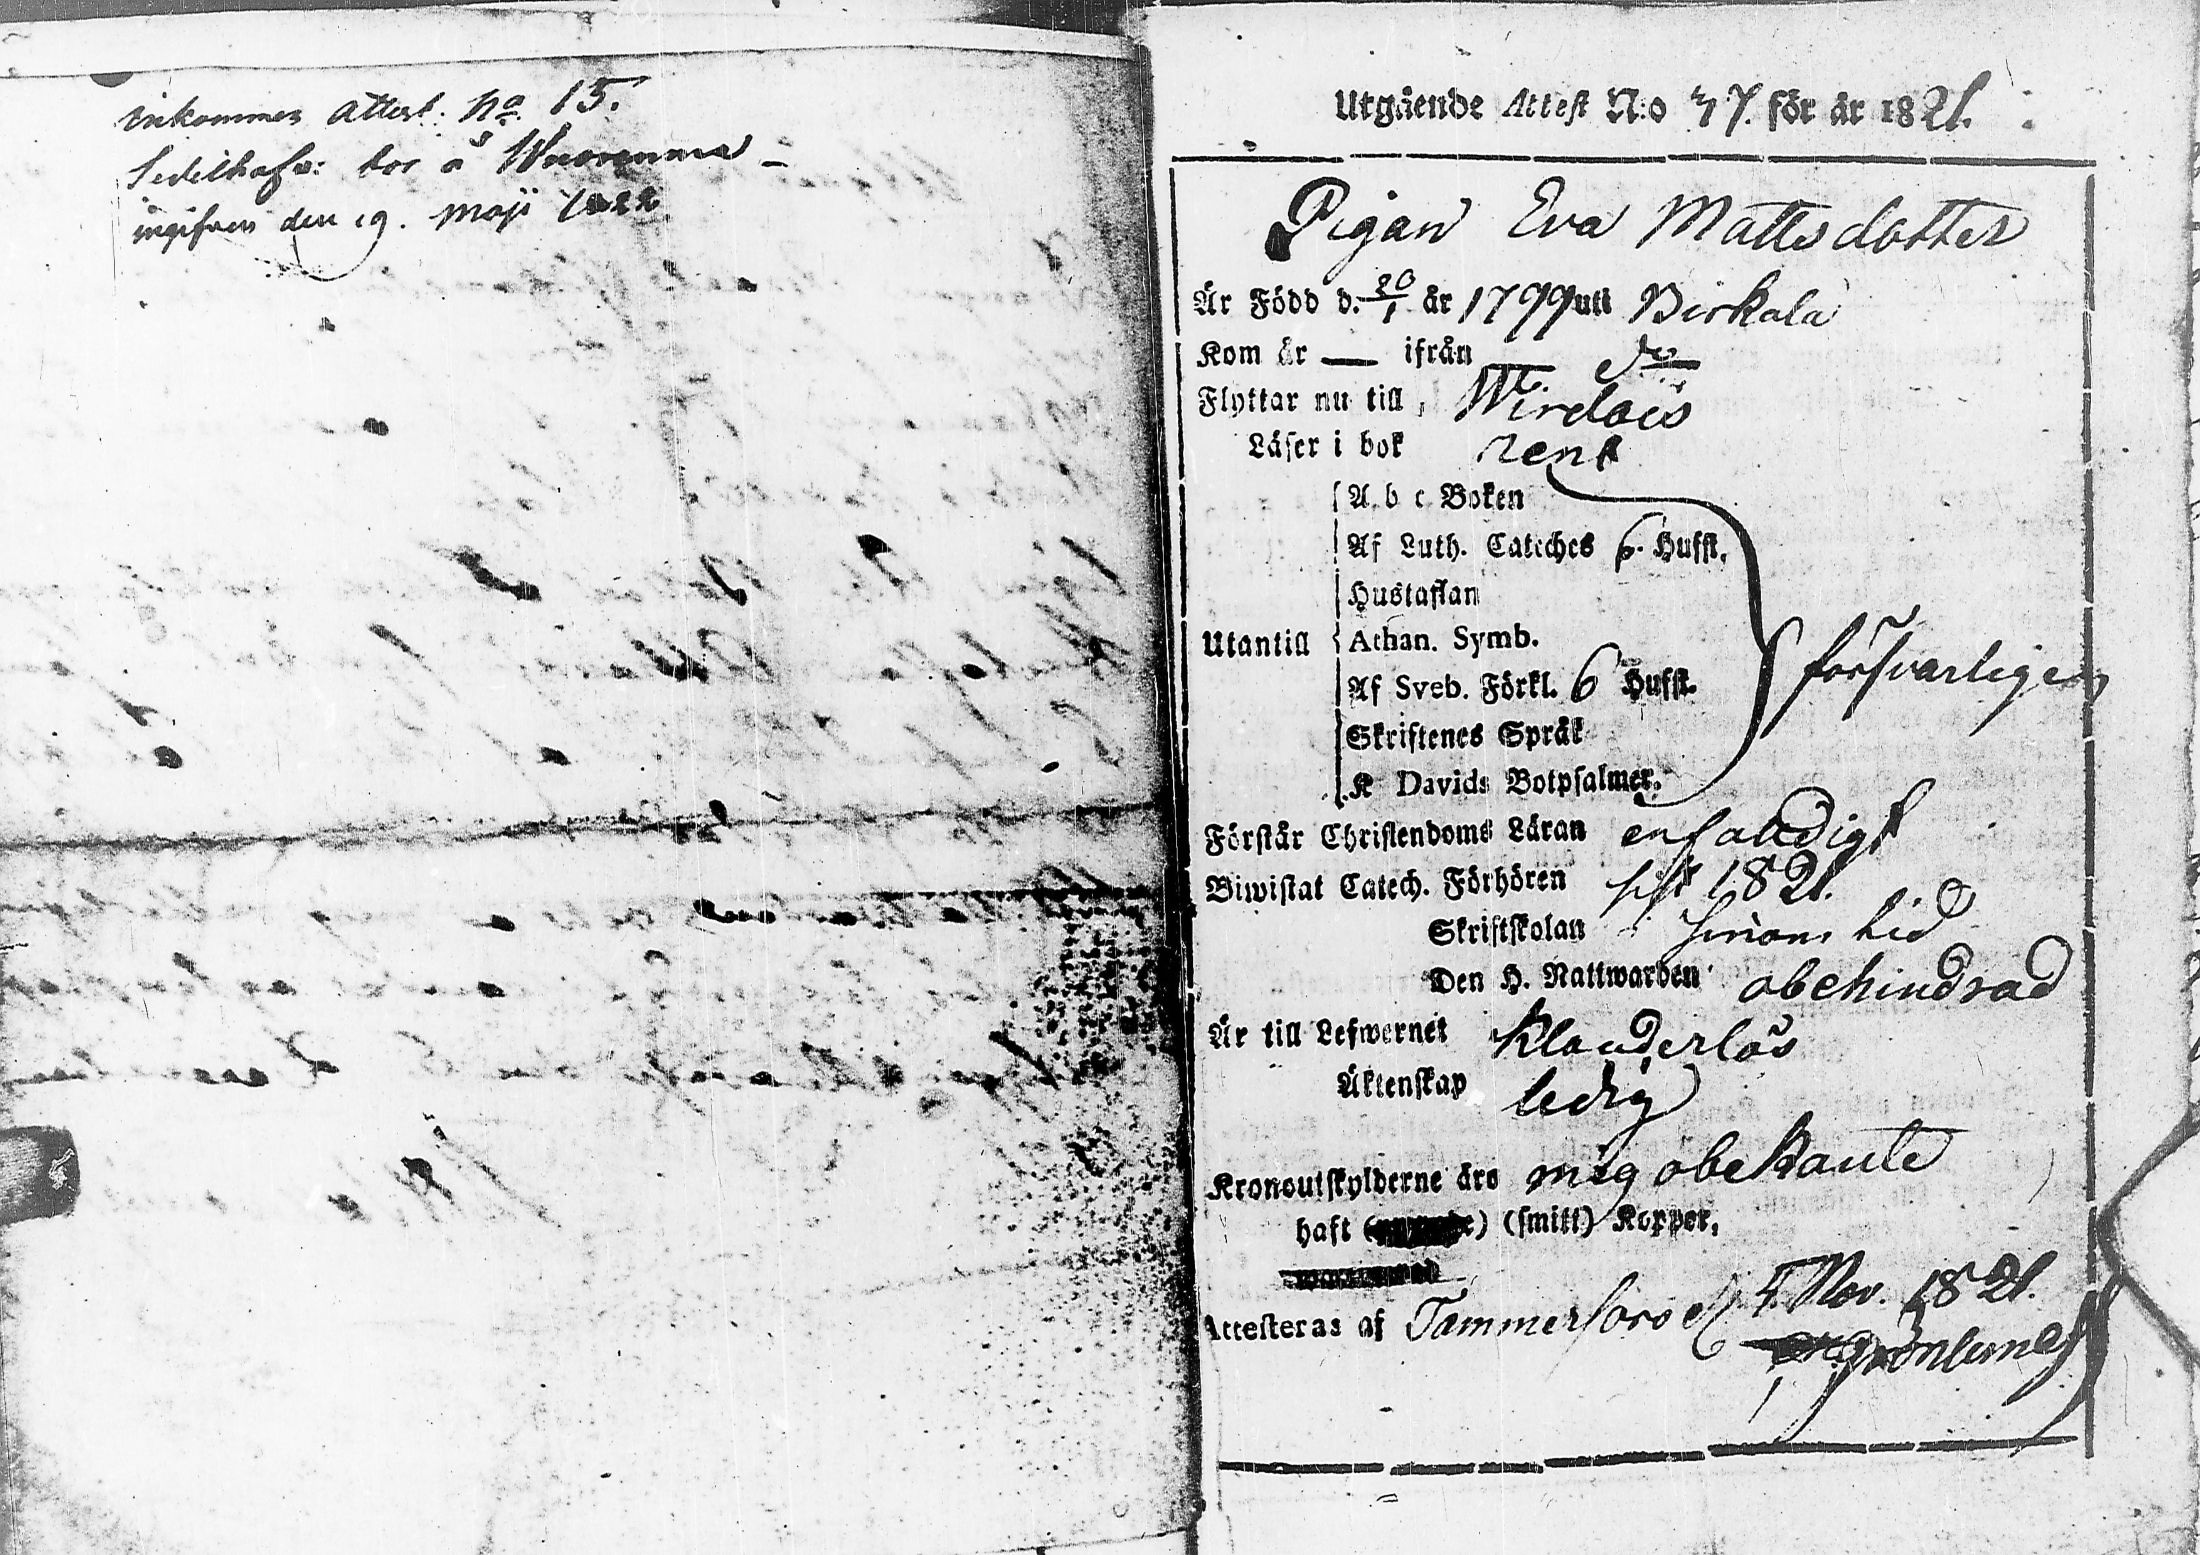 inkommen attest: No 15.
Sedelhafv: bor å Wuorenmaa
ingifven den 19. Maji 1822
Utgående Attest N:o 77. för år 1821.
Pigan Eva Mattsdotter
Är Född d. 20/1 år 1799 uti Birkala
Kom år — ifrån — do
Flyttar nu till, Wirdois
Läser i bok rent
A b c Boken
Af Luth. Cateches 6. Hufst.
Hustaflan
Utantill Athan. Symb.
Af Sveb. Förkl. 6 Hufst.
Skriftenes Språk
K Davids Botpsalmer.
försvarligen
Förstår Christendoms Läran enfaldigt
Biwistat Catech. Förhören sist 1821.
Skriftskolan sin tid
Den H. Nattwarden obehindrad
Är till Lefwernet Klanderlös
Äktenskap ledig
Kronoutskylderne äro mig obekante
haft (smitt) Koppor,
Attesteras af Tammerfors d. 4. Nov. 1821.
Grönlund